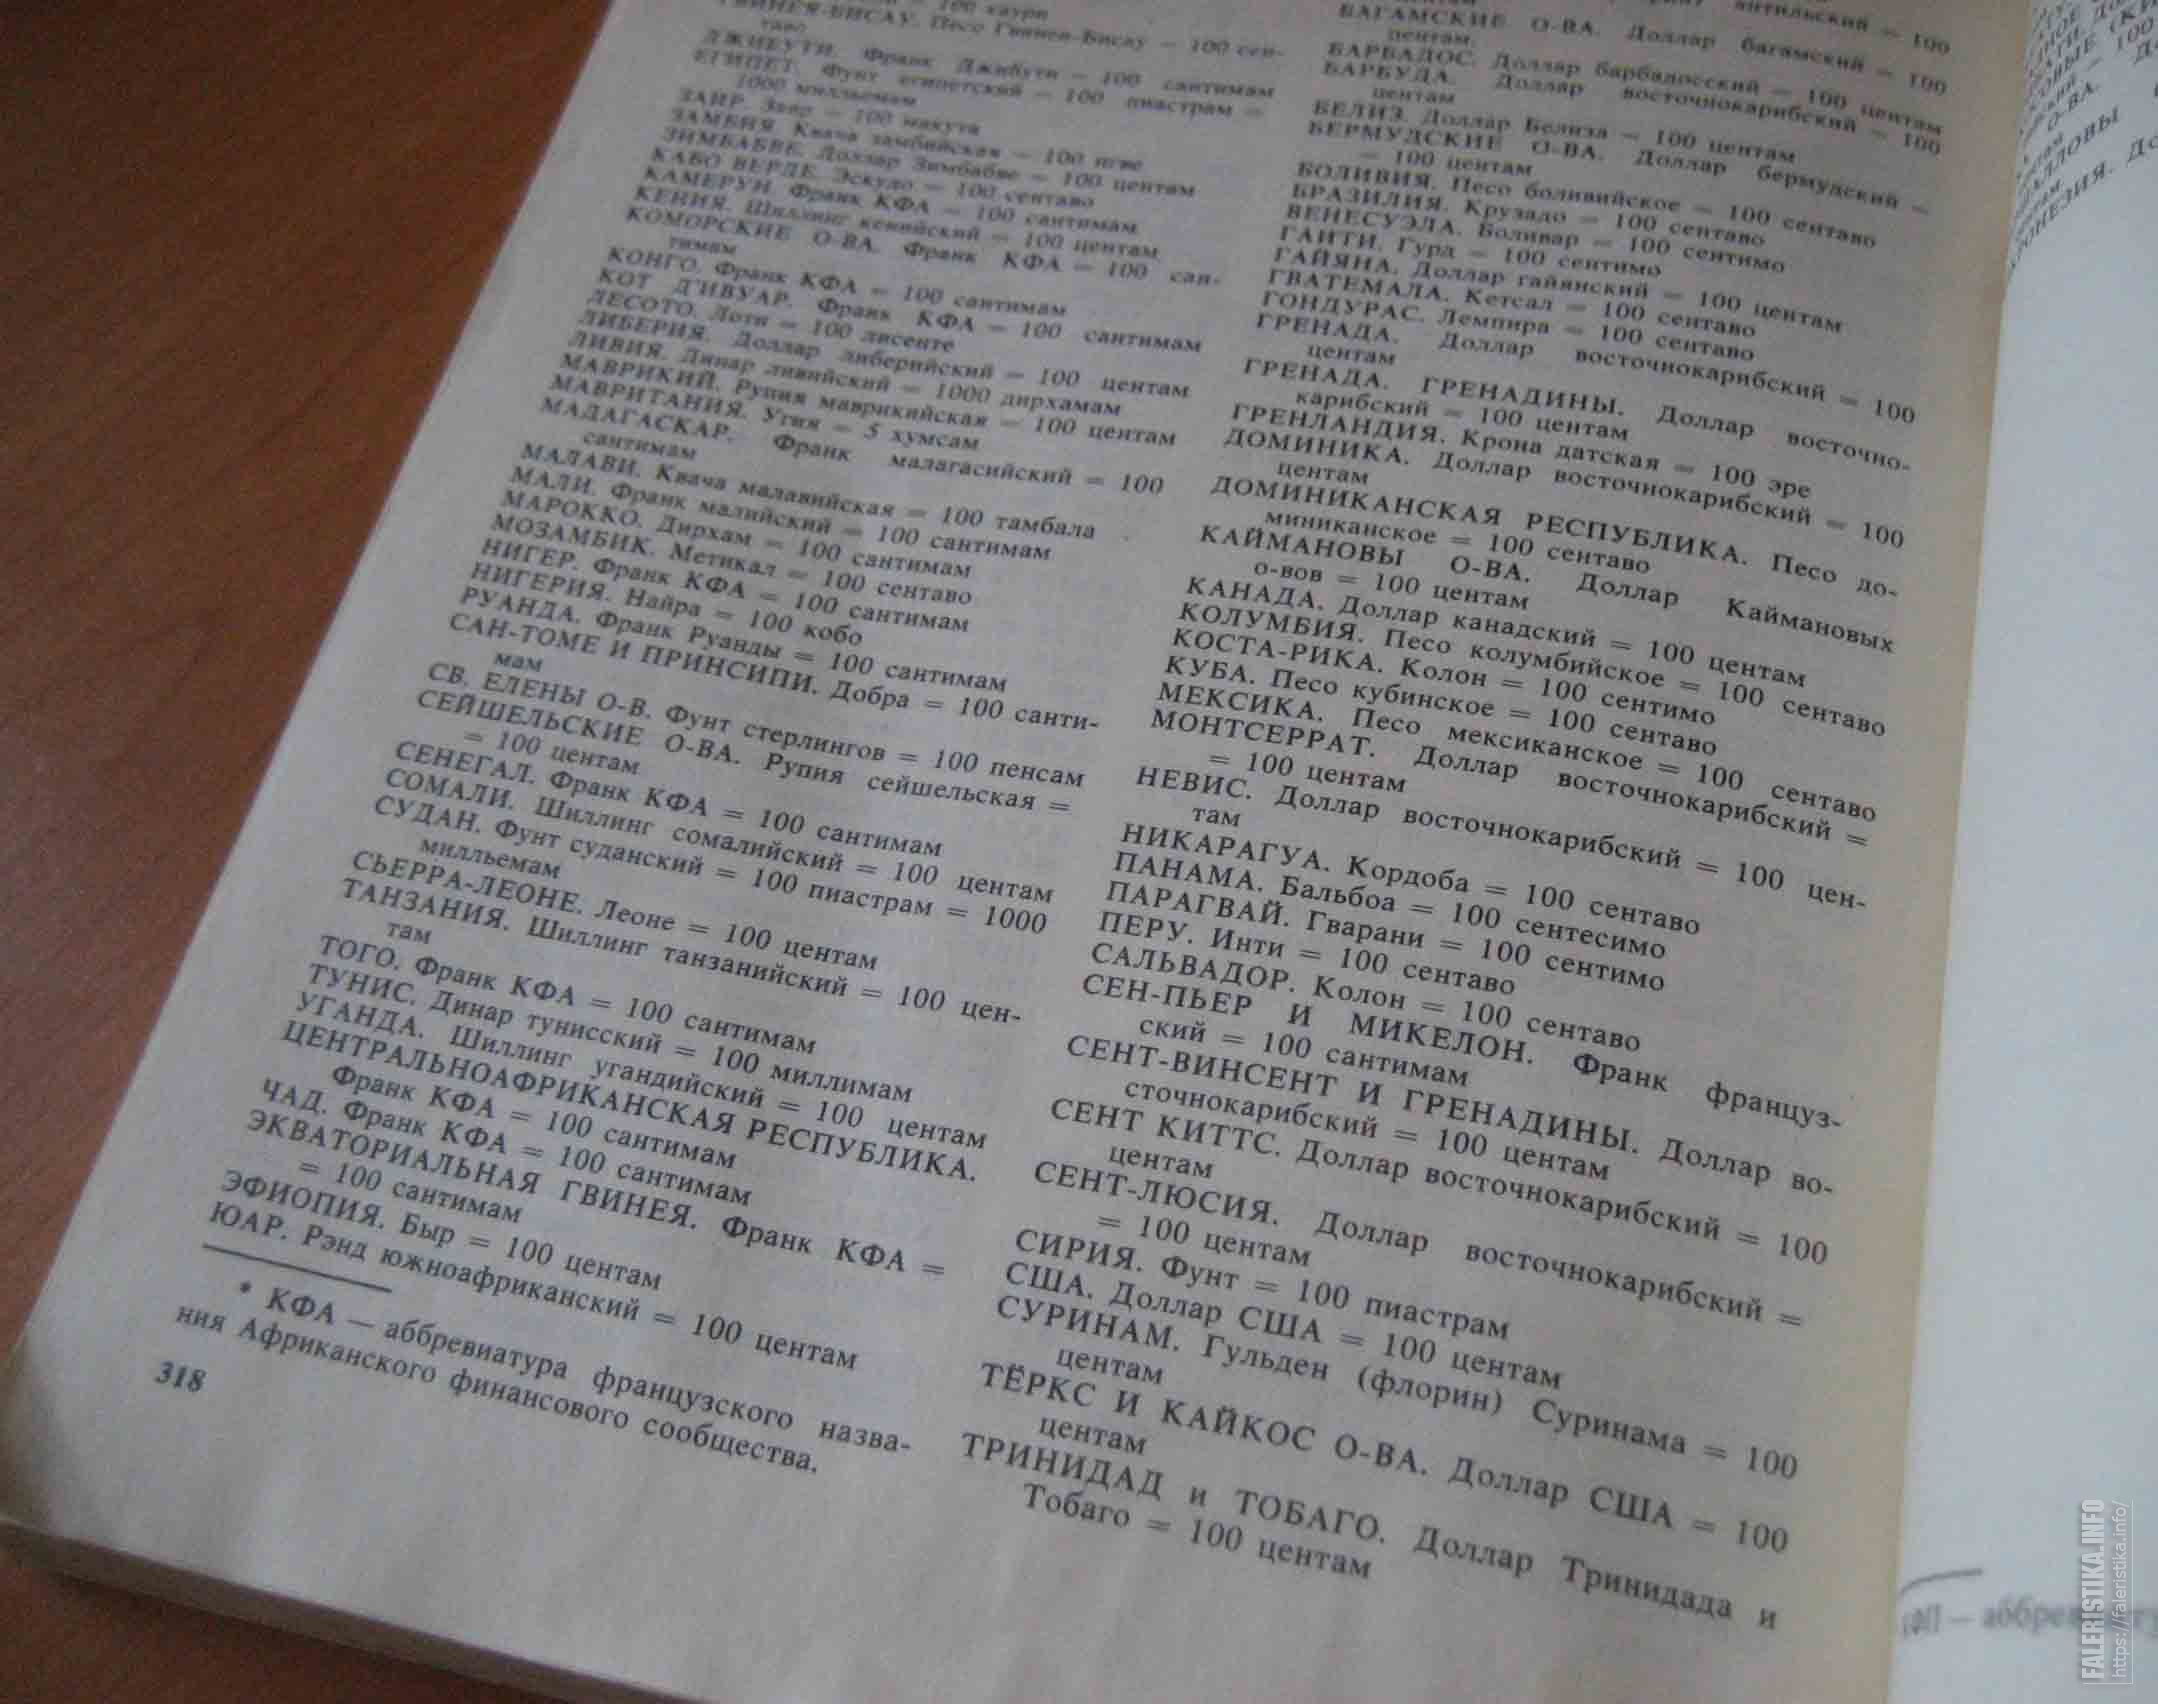 = 100 каури
ГВИНЕЯ-БИСАУ. Песо Гвинеи-Бисау = 100 сен-
таво
ДЖИБУТИ. Франк Джибути = 100 сантимам
ЕГИПЕТ. Фунт египетский = 100 пиастрам =
1000 милльемам
ЗАИР. Заир = 100 макута
ЗАМБИЯ. Квача замбийская = 100 нгве
ЗИМБАБВЕ. Доллар Зимбабве = 100 центам
КАБО ВЕРДЕ. Эскудо = 100 сентаво
КАМЕРУН. Франк КФА = 100 сантимам
КЕНИЯ. Шиллинг кенийский = 100 центам
КОМОРСКИЕ О-ВА. Франк КФА = 100 сан-
тимам
КОНГО. Франк КФА = 100 сантимам
КОТ Д'ИВУАР. Франк КФА = 100 сантимам
ЛЕСОТО. Лоти = 100 лисенте
ЛИБЕРИЯ. Доллар либерийский = 100 центам
ЛИВИЯ. Динар ливийский = 1000 дирхамам
МАВРИКИЙ. Рупия маврикийская = 100 центам
МАВРИТАНИЯ. Угия = 5 хумсам
МАДАГАСКАР. Франк малагасийский = 100
сантимам
МАЛАВИ. Квача малавийская = 100 тамбала
МАЛИ. Франк малийский = 100 сантимам
МАРОККО. Дирхам = 100 сантимам
МОЗАМБИК. Метикал = 100 сентаво
НИГЕР. Франк КФА = 100 сантимам
НИГЕРИЯ. Найра = 100 кобо
РУАНДА. Франк Руанды = 100 сантимам
САН-ТОМЕ И ПРИНСИПИ. Добра = 100 санти-
мам
СВ. ЕЛЕНЫ О-В. Фунт стерлингов = 100 пенсам
СЕЙШЕЛЬСКИЕ О-ВА. Рупия сейшельская =
= 100 центам
СЕНЕГАЛ. Франк КФА = 100 сантимам
СОМАЛИ. Шиллинг сомалийский = 100 центам
СУДАН. Фунт суданский = 100 пиастрам = 1000
милльемам
СЬЕРРА-ЛЕОНЕ. Леоне = 100 центам
ТАНЗАНИЯ. Шиллинг танзанийский = 100 цен-
там
ТОГО. Франк КФА = 100 сантимам
ТУНИС. Динар тунисский = 100 миллимам
УГАНДА. Шиллинг угандийский = 100 центам
ЦЕНТРАЛЬНОАФРИКАНСКАЯ РЕСПУБЛИКА.
Франк КФА = 100 сантимам
ЧАД. Франк КФА = 100 сантимам
ЭКВАТОРИАЛЬНАЯ ГВИНЕЯ. Франк КФА =
= 100 сантимам
ЭФИОПИЯ. Быр = 100 центам
ЮАР. Рэнд южноафриканский = 100 центам
* КФА — аббревиатура французского назва-
ния Африканского финансового сообщества.
318
антильский = 100
центам
БАГАМСКИЕ О-ВА. Доллар багамский = 100
центам.
БАРБАДОС. Доллар барбадосский = 100 центам
БАРБУДА. Доллар восточнокарибский = 100
центам
БЕЛИЗ. Доллар Белиза = 100 центам
БЕРМУДСКИЕ О-ВА. Доллар бермудский =
= 100 центам
БОЛИВИЯ. Песо боливийское = 100 сентаво
БРАЗИЛИЯ. Крузадо = 100 сентаво
ВЕНЕСУЭЛА. Боливар = 100 сентимо
ГАИТИ. Гурд = 100 сентимо
ГАЙЯНА. Доллар гайянский = 100 центам
ГВАТЕМАЛА. Кетсал = 100 сентаво
ГОНДУРАС. Лемпира = 100 сентаво
ГРЕНАДА. Доллар восточнокарибский = 100
центам
ГРЕНАДА. ГРЕНАДИНЫ. Доллар восточно-
карибский = 100 центам
ГРЕНЛАНДИЯ. Крона датская = 100 эре
ДОМИНИКА. Доллар восточнокарибский = 100
центам
ДОМИНИКАНСКАЯ РЕСПУБЛИКА. Песо до-
миниканское = 100 сентаво
КАЙМАНОВЫ О-ВА. Доллар Каймановых
о-вов = 100 центам
КАНАДА. Доллар канадский = 100 центам
КОЛУМБИЯ. Песо колумбийское = 100 сентаво
КОСТА-РИКА. Колон = 100 сентимо
КУБА. Песо кубинское = 100 сентаво
МЕКСИКА. Песо мексиканское = 100 сентаво
МОНТСЕРРАТ. Доллар восточнокарибский =
= 100 центам
НЕВИС. Доллар восточнокарибский = 100 цен-
там
НИКАРАГУА. Кордоба = 100 сентаво
ПАНАМА. Бальбоа = 100 сентесимо
ПАРАГВАЙ. Гварани = 100 сентимо
ПЕРУ. Инти = 100 сентаво
САЛЬВАДОР. Колон = 100 сентаво
СЕН-ПЬЕР И МИКЕЛОН. Франк француз-
ский = 100 сантимам
СЕНТ-ВИНСЕНТ И ГРЕНАДИНЫ. Доллар во-
сточнокарибский = 100 центам
СЕНТ КИТТС. Доллар восточнокарибский = 100
центам
СЕНТ-ЛЮСИЯ. Доллар восточнокарибский =
= 100 центам
СИРИЯ. Фунт = 100 пиастрам
США. Доллар США = 100 центам
СУРИНАМ. Гульден (флорин) Суринама = 100
центам
ТЁРКС И КАЙКОС О-ВА. Доллар США = 100
центам
ТРИНИДАД и ТОБАГО. Доллар Тринидада и
Тобаго = 100 центам
— аббрев
FALERISTIKA.INFO
https://faleristika.info/